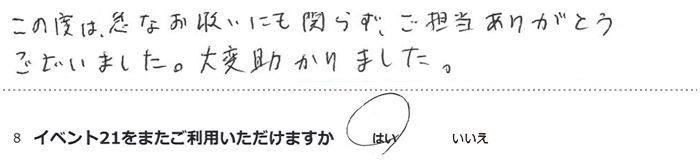 この度は、急なお願いにも関らず、ご担当ありがとう
ございました。大変助かりました。
8 イベント21をまたご利用いただけますか はい いいえ